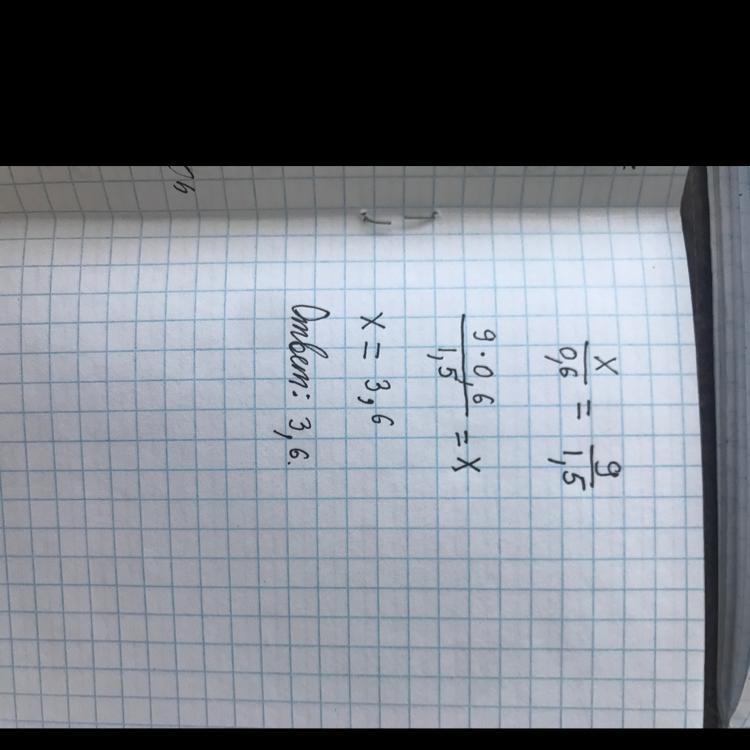 x/0,6 = 9/1,5
9·0,6/1,5 = x
x = 3,6
Ответ: 3,6.